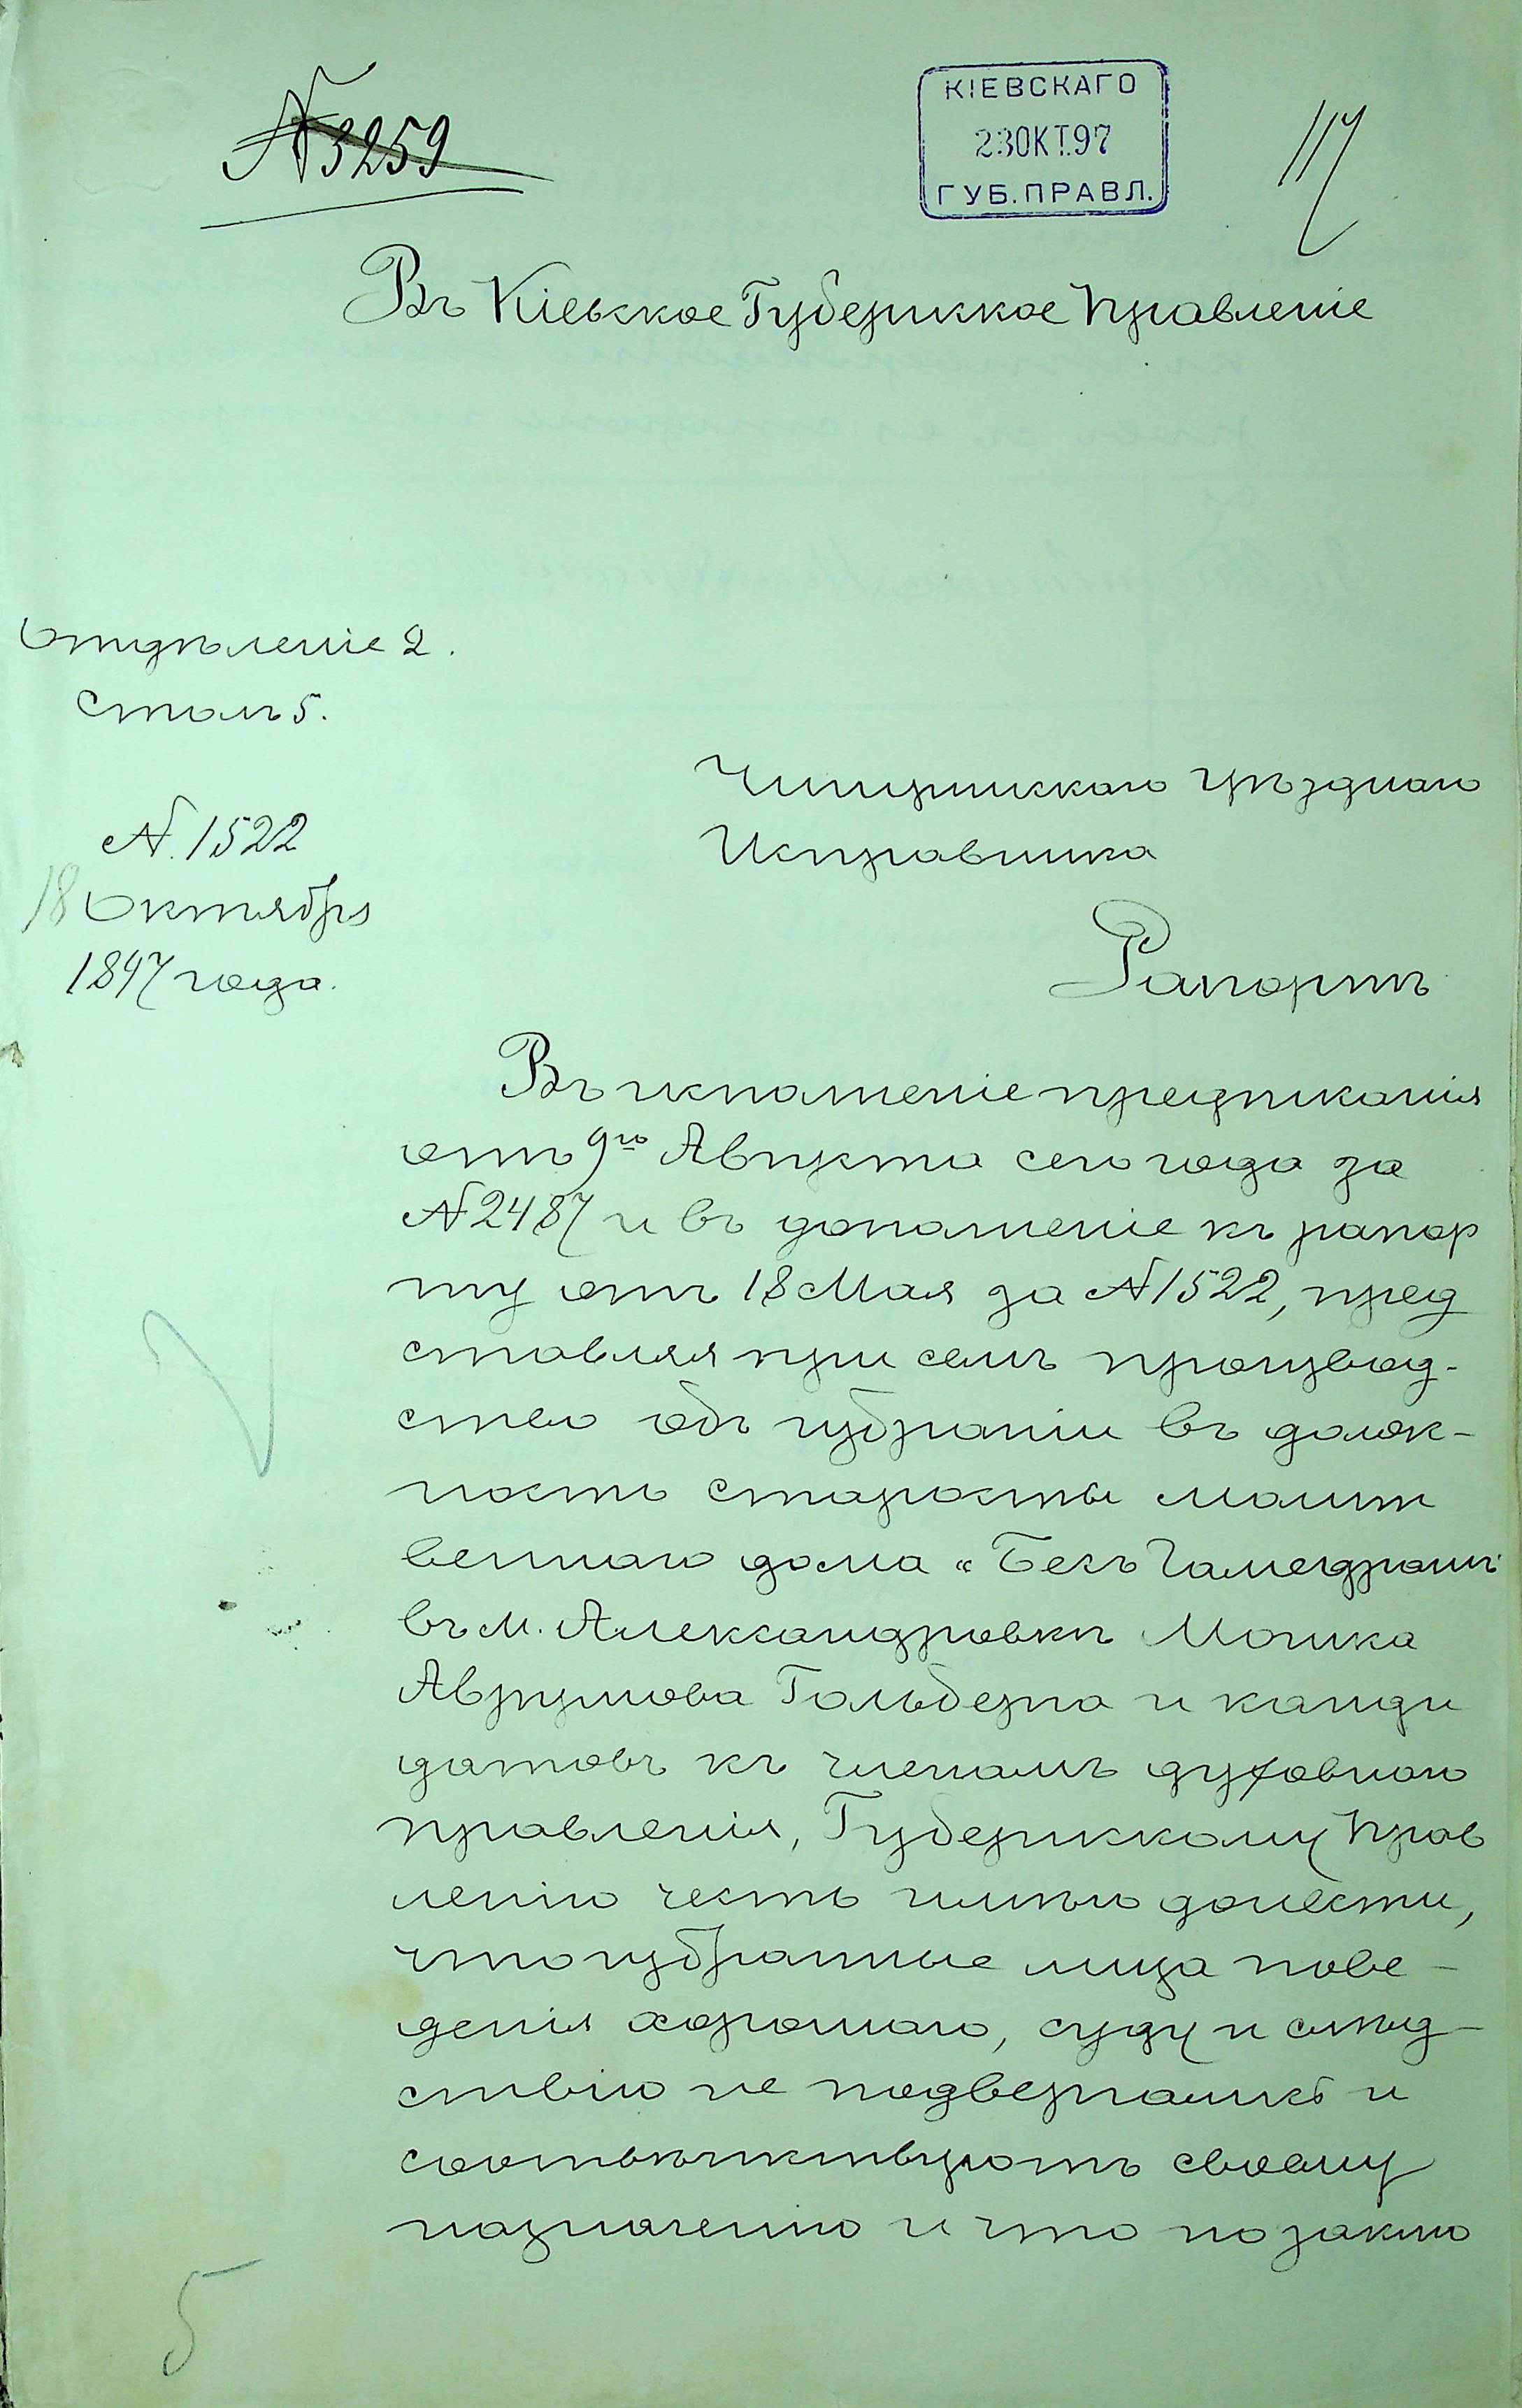 № 3259
КІЕВСКАГО
23 ОКТ. 97
ГУБ. ПРАВЛ.
117
Въ Кіевское Губернское Правленіе
Отдѣленіе 2.
Столъ 5.
Чигиринскаго Уѣзднаго
Исправника
№. 1522
18 Октября
1897 года.
Рапортъ
Въ исполненіе предписанія
отъ 9го Августа сего года за
№ 2487 и въ дополненіе къ рапор
ту отъ 18 Мая за № 1522, пред
ставляя при семъ производ-
ство объ избраніи въ долж-
ность старосты молит
веннаго дома „Бесъ Гамедрашъ
въ м. Александровкѣ Мошка
Аврумова Гольберга и канди
датовъ къ членамъ духовнаго
правленія, Губернскому Прав
ленію честь имѣю донести,
что избранные лица пове-
денія хорошаго, суду и слѣд-
ствію не подвергались и
соотвѣтствуютъ своему
назначенію и что по заклю
5